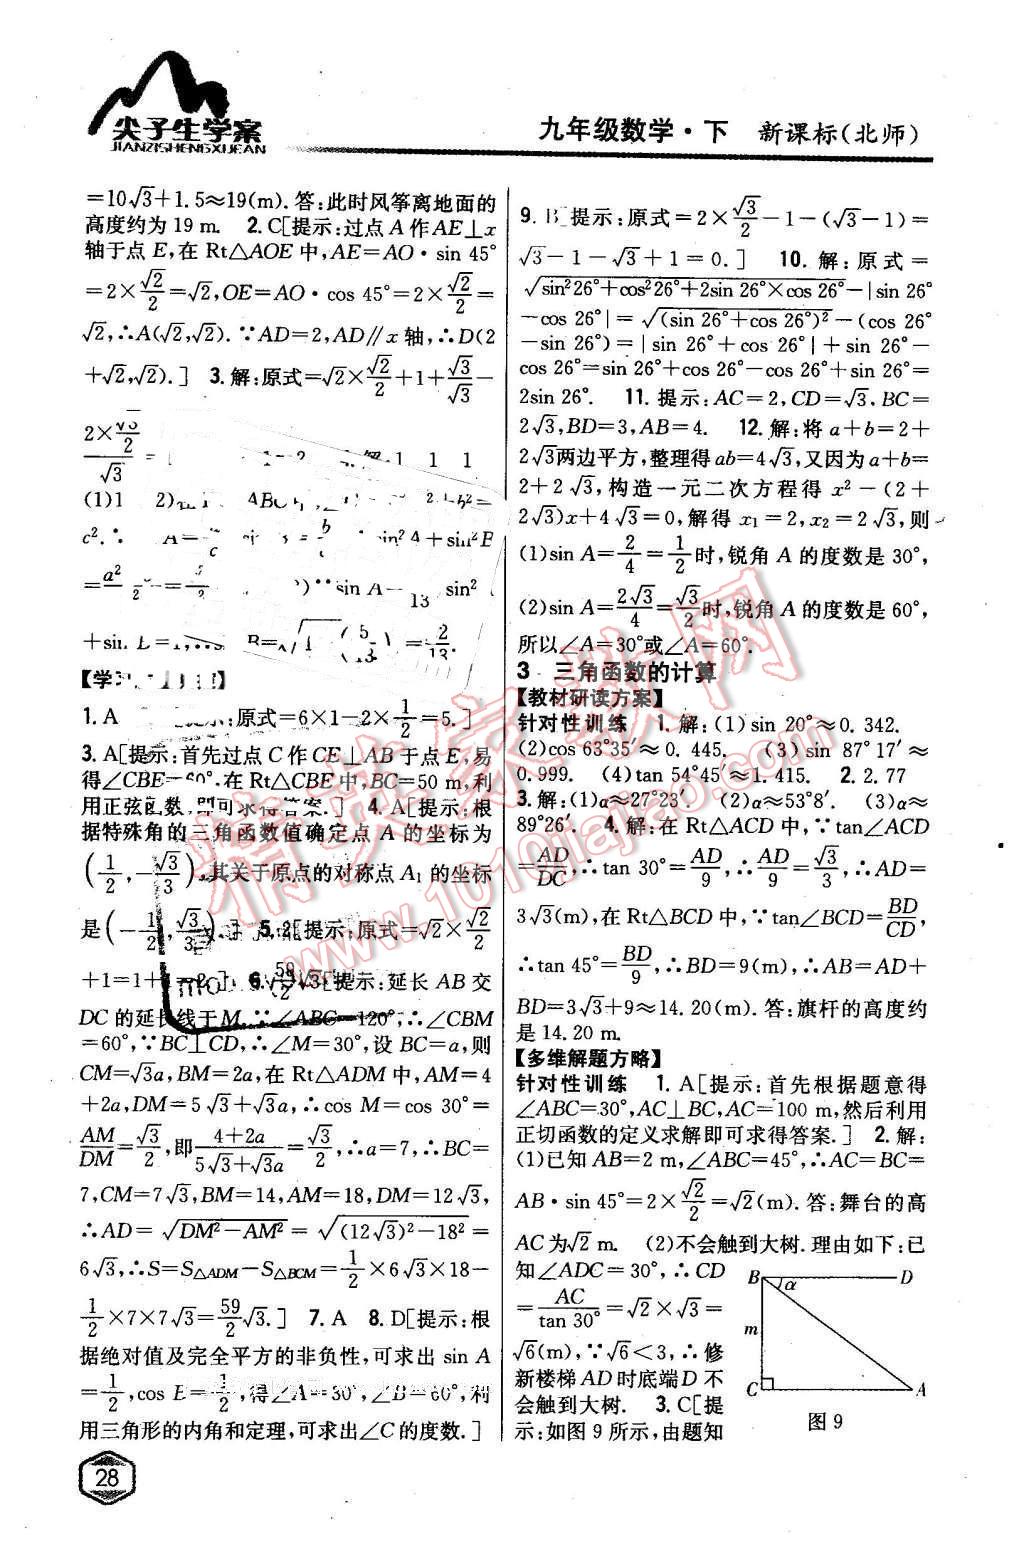 尖子生学案
JIANZISHENGXUEAN
九年级数学·下 新课标(北师)
=10√3+1.5≈19(m).答:此时风筝离地面的
高度约为 19 m. 2.C[提示:过点 A 作 AE⊥x
轴于点 E,在 Rt△AOE 中,AE=AO·sin 45°
=2×√2/2=√2,OE=AO·cos 45°=2×√2/2=
√2,∴A(√2,√2).∵AD=2,AD∥x 轴,∴D(2
+√2,√2).] 3.解:原式=√2×√2/2+1+√3/√3-
1.A
:原式=6×1-2×1/2=5.]
3.A[提示:首先过点 C 作 CE⊥AB 于点 E,易
得∠CBE=60°.在 Rt△CBE 中,BC=50 m,利
用正弦函数,即可求得答案.] 4.A[提示:根
据特殊角的三角函数值确定点 A 的坐标为
(1/2,-√3/3),其关于原点的对称点 A₁ 的坐标
是(-1/2,√3/3).] 5.2[提示:原式=√2×√2/2
+1=1+1=2.] 6.59/2√3[提示:延长 AB 交
DC 的延长线于 M.∵∠ABC=120°,∴∠CBM
=60°,∵BC⊥CD,∴∠M=30°,设 BC=a,则
CM=√3a,BM=2a,在 Rt△ADM 中,AM=4
+2a,DM=5√3+√3a,∴cos M=cos 30°=
AM/DM=√3/2,即(4+2a)/(5√3+√3a)=√3/2,∴a=7,∴BC=
7,CM=7√3,BM=14,AM=18,DM=12√3,
∴AD=√(DM²-AM²)=√((12√3)²-18²)=
6√3,∴S=S△ADM-S△BCM=1/2×6√3×18-
1/2×7×7√3=59/2√3.] 7.A 8.D[提示:根
据绝对值及完全平方的非负性,可求出 sin A
=1/2,cos E=1/2,得∠A=30°,∠B=60°,利
用三角形的内角和定理,可求出∠C 的度数.]
28
9.B[提示:原式=2×√3/2-1-(√3-1)=
√3-1-√3+1=0.] 10.解:原式=
√(sin²26°+cos²26°+2sin 26°×cos 26°)-|sin 26°
-cos 26°|=√((sin 26°+cos 26°)²)-(cos 26°
-sin 26°)=|sin 26°+cos 26°|+sin 26°-
cos 26°=sin 26°+cos 26°-cos 26°+sin 26°=
2sin 26°. 11.提示:AC=2,CD=√3.BC=
2√3,BD=3,AB=4. 12.解:将 a+b=2+
2√3两边平方,整理得 ab=4√3,又因为 a+b=
2+2√3,构造一元二次方程得 x²-(2+
2√3)x+4√3=0,解得 x₁=2,x₂=2√3,则
(1)sin A=2/4=1/2时,锐角 A 的度数是 30°,
(2)sin A=2√3/4=√3/2时,锐角 A 的度数是 60°,
所以∠A=30°或∠A=60°.
3 三角函数的计算
【教材研读方案】
针对性训练 1.解:(1)sin 20°≈0.342.
(2)cos 63°35′≈0.445. (3)sin 87°17′≈
0.999. (4)tan 54°45′≈1.415. 2.2.77
3.解:(1)α≈27°23′. (2)α≈53°8′. (3)α≈
89°26′. 4.解:在 Rt△ACD 中,∵tan∠ACD
=AD/DC,∴tan 30°=AD/9,∴AD/9=√3/3,∴AD=
3√3(m),在 Rt△BCD 中,∵tan∠BCD=BD/CD,
∴tan 45°=BD/9,∴BD=9(m),∴AB=AD+
BD=3√3+9≈14.20(m).答:旗杆的高度约
是 14.20 m.
【多维解题方略】
针对性训练 1.A[提示:首先根据题意得
∠ABC=30°,AC⊥BC,AC=100 m,然后利用
正切函数的定义求解即可求得答案.] 2.解:
(1)已知 AB=2 m,∠ABC=45°,∴AC=BC=
AB·sin 45°=2×√2/2=√2(m).答:舞台的高
AC 为√2 m. (2)不会触到大树.理由如下:已
知∠ADC=30°,∴CD
=AC/tan 30°=√2×√3=
√6(m),∵√6<3,∴修
新楼梯 AD 时底端 D 不
会触到大树. 3.C[提
示:如图 9 所示,由题知
B
α
D
m
C
A
图 9
精英家教网
www.1010jiajiao.com